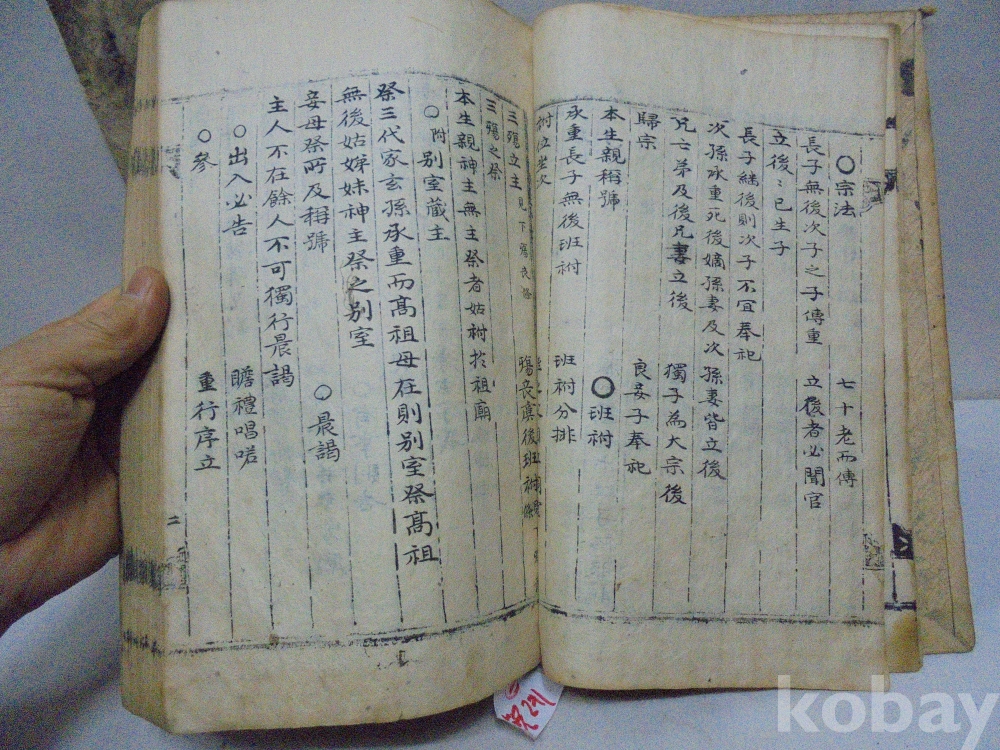 ○宗法 七十老而傳
長子無後次子之子傳重 立後者必聞官
立後︰已生子
長子繼後則次子不宜奉祀
次孫承重死後嫡孫妻及次孫妻皆立後
兄亡弟及後兄妻立後 獨子為大宗後
歸宗 良妾子奉祀
本生親稱號 ○班祔
承重長子無後班祔 班祔分排
祔位坐次
三殤立主 見下殤喪條 殤喪虞後班祔條
三殤之祭
本生親神主無主祭者姑祔於祖廟
○附別室藏主
祭三代家玄孫承重而高祖母在則別室祭高祖
無後姑姊妹神主祭之別室
妾母祭所及稱號 ○晨謁
主人不在餘人不可獨行晨謁
○出入必告 瞻禮唱喏
○參 重行序立
二
kobay